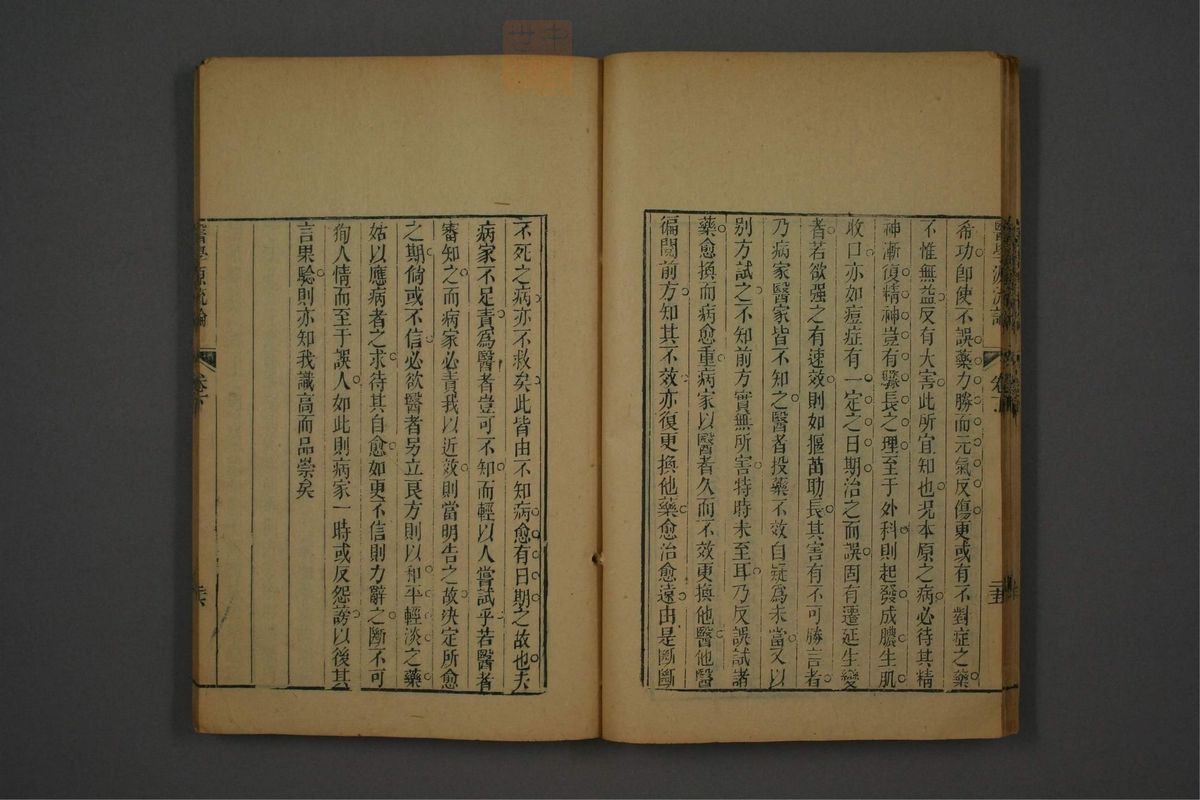 希功卽使不誤藥力勝而元氣反傷更或有不對症之藥
不惟無益反有大害此所宜知也况本原之病必待其精
神漸復精神豈有驟長之理至于外科則起發成膿生肌
收口亦如痘症有一定之日期治之而誤固有遷延生變
者若欲强之有速效則如揠苗助長其害有不可勝言者
乃病家醫家皆不知之醫者投藥不效自疑爲未當又以
别方試之不知前方實無所害特時未至耳乃反誤試諸
藥愈換而病愈重病家以醫者久而不效更換他醫他醫
徧閱前方知其不效亦復更換他藥愈治愈遠由是斷斷
不死之病亦不救矣此皆由不知病愈有日期之故也夫
病家不足責爲醫者豈可不知而輕以人嘗試乎若醫者
審知之而病家必責我以近效則當明告之故决定所愈
之期倘或不信必欲醫者另立良方則以和平輕淡之藥
姑以應病者之求待其自愈如更不信則力辭之斷不可
狥人情而至于誤人如此則病家一時或反怨謗以後其
言果驗則亦知我識高而品崇矣
醫學源流論
卷下